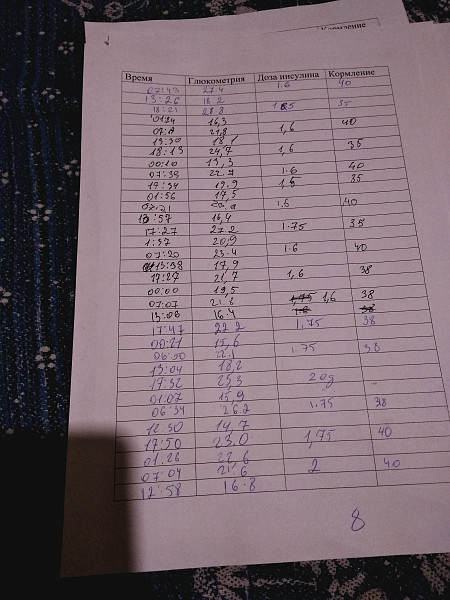 Кормление
Время Глюкометрия Доза инсулина Кормление
07:43 27.4 1.6 40
13:26 18.2
18:21 28.8 35
16,3
07:11 21,8 1,6 40
13:30 18
18:13 24,7 1,6 35
00:10 13,3
07:39 22.7 1.6 40
17:34 19.9 1,6 35
01:56 17,5
1.6 40
13:57 16,4
17:27 27.2 1.75 35
1:37 20,9
07:20 23.4 1.6 40
13:38 17,9
17:27 21,7 1,6 38
00:00 19,5
07:07 21.8 1,75 1,6 38
13:08 16.4 1.8 38
17:47 22.2 1.75 38
00:21 15,6
06:50 22.1 1.75 38
13:04 18,2
17:32 23,3 20g -
01:07 15,9
06:34 26.2 1.75 38
12:30 14.7
17:50 23.0 1,75 40
01.26 22,6
07:04 21,6 2 40
12:58 16.8
8